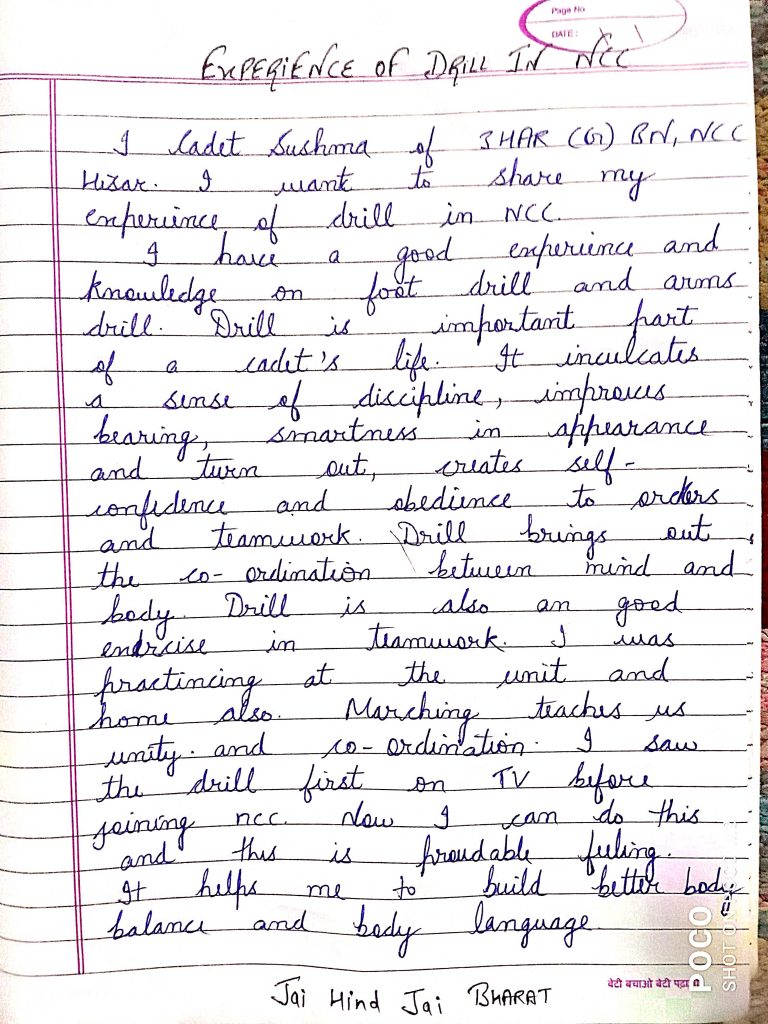 Page No
DATE:
EXPERIENCE OF DRILL IN NCC
I Cadet Sushma of 3HAR (G) BN, NCC
Hisar. I want to share my
experience of drill in NCC.
I have a good experience and
knowledge on foot drill and arms
drill. Drill is important part
of a cadet's life. It inculcates
a sense of discipline, improves
bearing, smartness in appearance
and turn out, creates self-
confidence and obedience to orders
and teamwork. Drill brings out
the co-ordination between mind and
body. Drill is also an good
exercise in teamwork. I was
practincing at the unit and
home also. Marching teaches us
unity and co-ordination. I saw
the drill first on TV before
joining ncc. Now I can do this
and this is proudable feeling.
It helps me to build better body
balance and body language
Jai Hind Jai BHARAT
बेटी बचाओ बेटी पढ़ा
POCO
SHOT ON